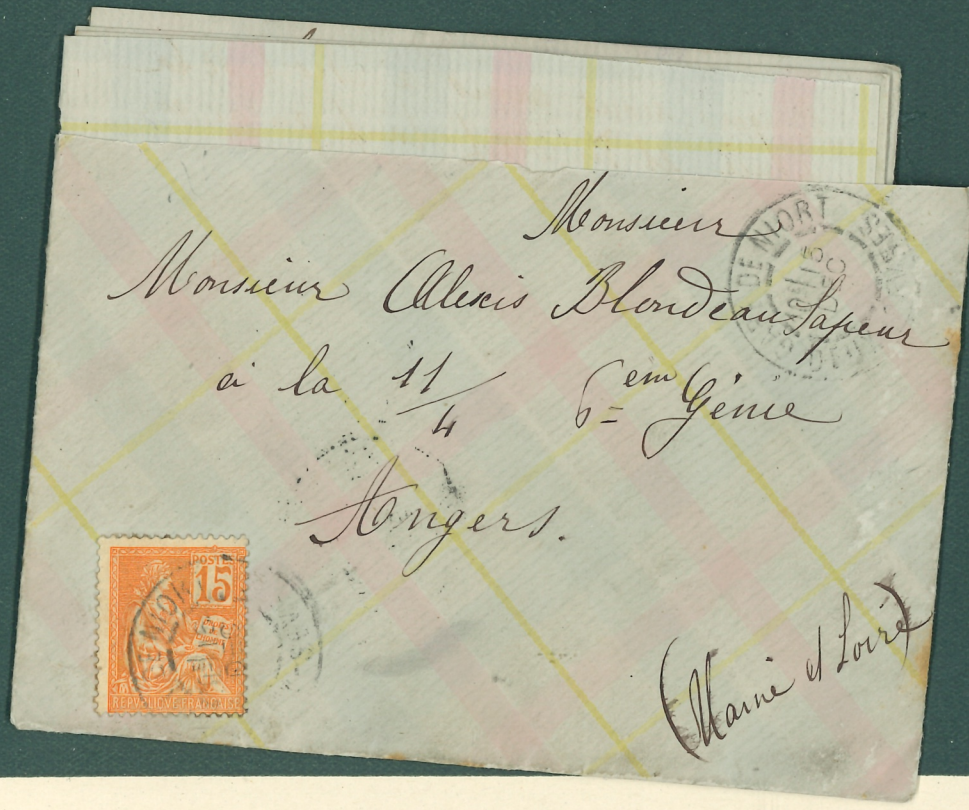 Monsieur
Monsieur Alexis Blondeau Sapeur
à la 11/4 6em Génie
Angers.
(Maine et Loire)
DE NIORT
POSTES
15
REPUBLIQUE FRANÇAISE